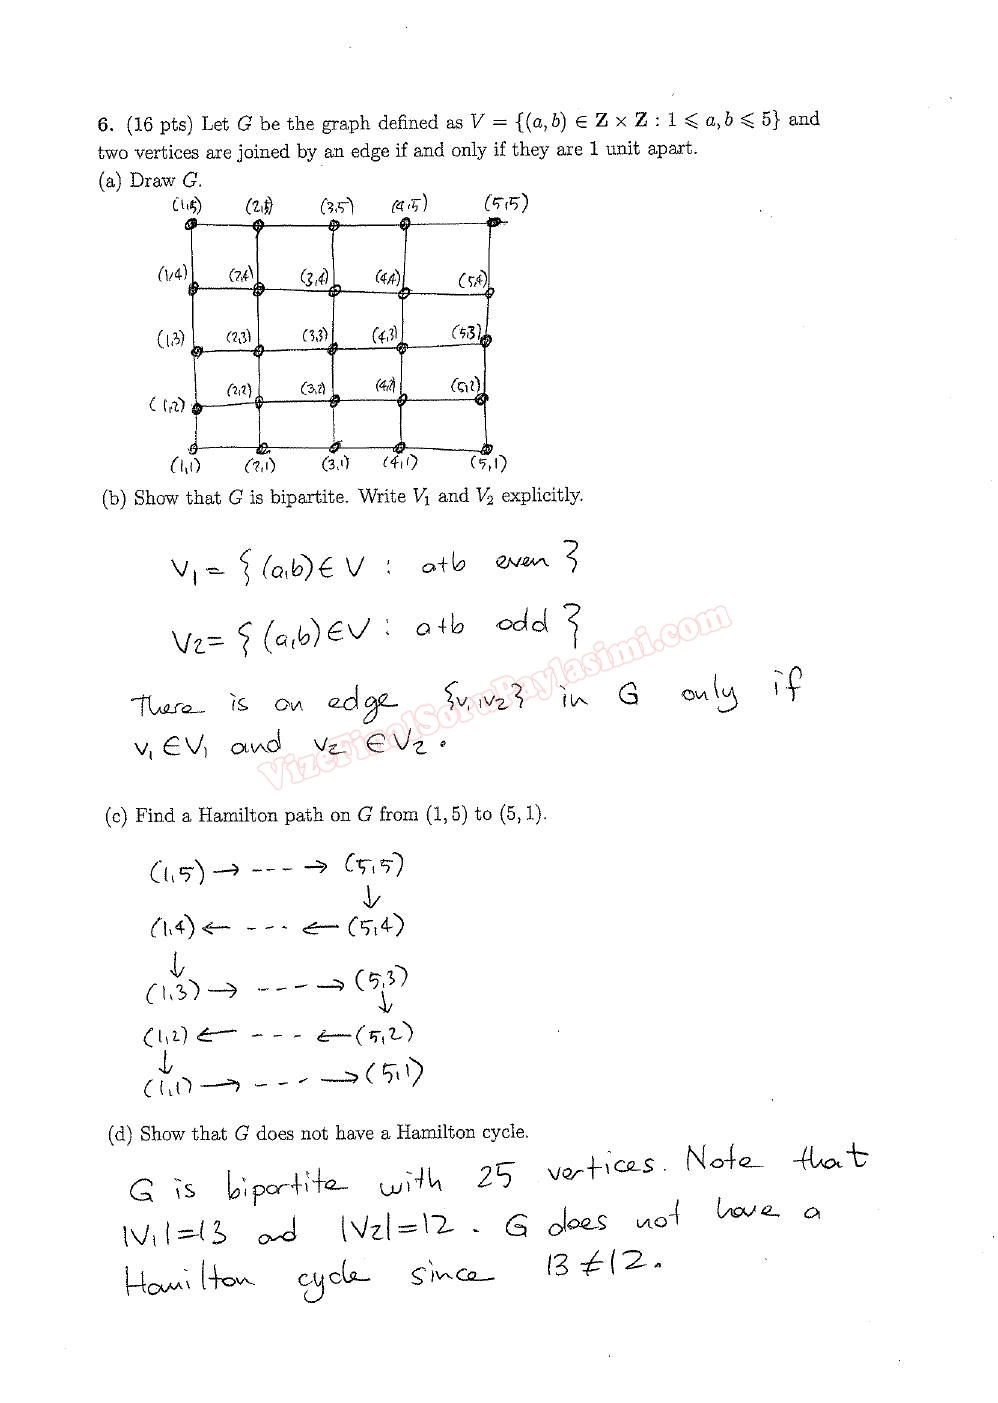 6. (16 pts) Let G be the graph defined as V = {(a, b) ∈ Z × Z : 1 ⩽ a, b ⩽ 5} and
two vertices are joined by an edge if and only if they are 1 unit apart.
(a) Draw G.
(1,5) (2,5) (3,5) (4,5) (5,5)
(1,4) (2,4) (3,4) (4,4) (5,4)
(1,3) (2,3) (3,3) (4,3) (5,3)
(1,2) (2,2) (3,2) (4,2) (5,2)
(1,1) (2,1) (3,1) (4,1) (5,1)
(b) Show that G is bipartite. Write V₁ and V₂ explicitly.
V₁ = { (a,b) ∈ V : a+b even }
V₂ = { (a,b) ∈ V : a+b odd }
There is an edge {v₁,v₂} in G only if
v₁ ∈ V₁ and v₂ ∈ V₂.
VizeFinalSoruPaylasimi.com
(c) Find a Hamilton path on G from (1, 5) to (5, 1).
(1,5) → --- → (5,5)
↓
(1,4) ← --- ← (5,4)
↓
(1,3) → --- → (5,3)
↓
(1,2) ← --- ← (5,2)
↓
(1,1) → --- → (5,1)
(d) Show that G does not have a Hamilton cycle.
G is bipartite with 25 vertices. Note that
|V₁|=13 and |V₂|=12. G does not have a
Hamilton cycle since 13 ≠ 12.